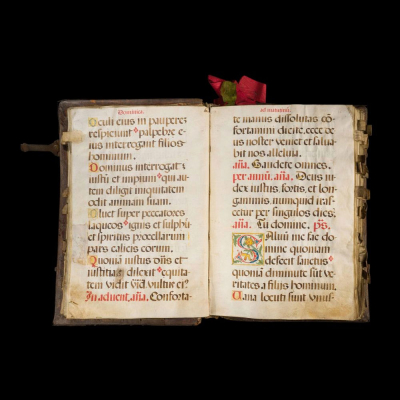 Dominica.
Oculi eius in pauperez
respiciunt palpebre e-
ius interrogant filios
hominum.
Dominus interrogat
iustū et impiū qui au-
tem diligit iniquitatem
odit animam suam.
Pluet super peccatores
laqueos ignis et sulphu
et spiritus procellarum
pars calicis eorum.
Quoniā iustus dñs et
iustitias dilexit equita-
tem vidit vult' ei'
In aduent. aña. Conforta-
ad matutinū.
te manus dissolutas cō-
fortamini dicite. ecce de
us noster veniet et salua-
bit nos alleluia.
aña. Gaudete omnes.
per annū. aña. Deus iu-
dex iustus fortis. et lon-
ganimis nunquid iras-
cetur per singulos dies.
aña. Tu domine. ps.
Saluū me fac do
mine quoniam
defecit sanctus
quoniā diminute sūt ve-
ritates a filiis hominum.
Uana locuti sunt vnus-